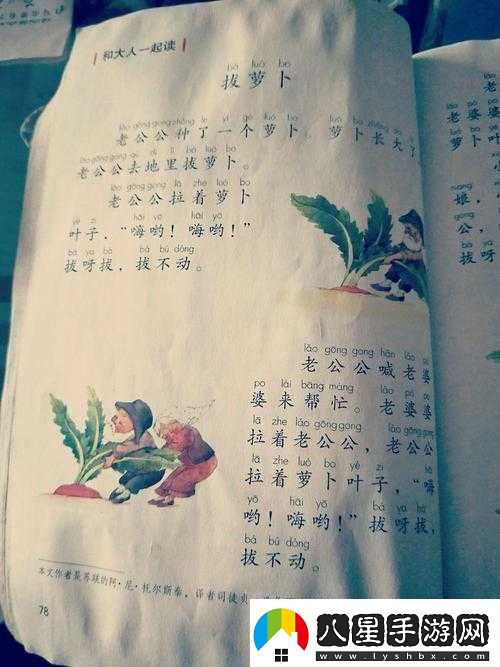 和大人一起读
bá luó bo
拔萝卜
lǎo gōng gong zhòng le yí gè luó bo luó bo zhǎng dà
老公公种了一个萝卜。萝卜长大了
老公公去地里拔萝卜。
lǎo gōng gong lā zhe luó bo
老公公拉着萝卜
yè zi hāi yō hāi yō
叶子，“嗨哟！嗨哟！”
bá ya bá bá bú dòng
拔呀拔，拔不动。
lǎo gōng gong hǎn lǎo pó
老公公喊老婆
po lái bāng máng lǎo pó po
婆来帮忙。老婆婆
lā zhe lǎo gōng gong lǎo gōng gong
拉着老公公，老公公
lā zhe luó bo yè zi hāi
拉着萝卜叶子，“嗨
yō hāi yō bá ya bá
哟！嗨哟！”拔呀拔，
bá bú dòng
拔不动。
本文作者是苏联的阿·尼·托尔斯泰，译者司徒
78
老
老婆
萝卜叶
小
娘，
公，
拔
八星手游网
www.lyshbx.com